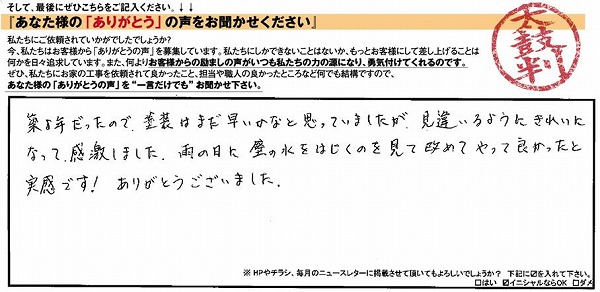 そして、最後にぜひこちらをご記入ください。↓↓
『あなた様の「ありがとう」の声をお聞かせください』
私たちにご依頼されていかがでしたでしょうか?
今、私たちはお客様から「ありがとうの声」を募集しています。私たちにしかできないことはないか、もっとお客様にして差し上げることは
何かを日々追求しています。また、何よりお客様からの励ましの声がいつも私たちの力の源になり、勇気付けてくれるのです。
ぜひ、私たちにお家の工事を依頼されて良かったこと、担当や職人の良かったところなど何でも結構ですので、
あなた様の「ありがとうの声」を“一言だけでも”お聞かせ下さい。
太鼓判
築8年だったので、塗装はまだ早いかなと思っていましたが、見違いるようにきれいに
なって、感激しました。雨の日に壁の水をはじくのを見て改めてやって良かったと
実感です! ありがとうございました。
※HPやチラシ、毎月のニュースレターに掲載させて頂いてもよろしいでしょうか? 下記に☑を入れて下さい。
□はい ☑イニシャルならOK □ダメ